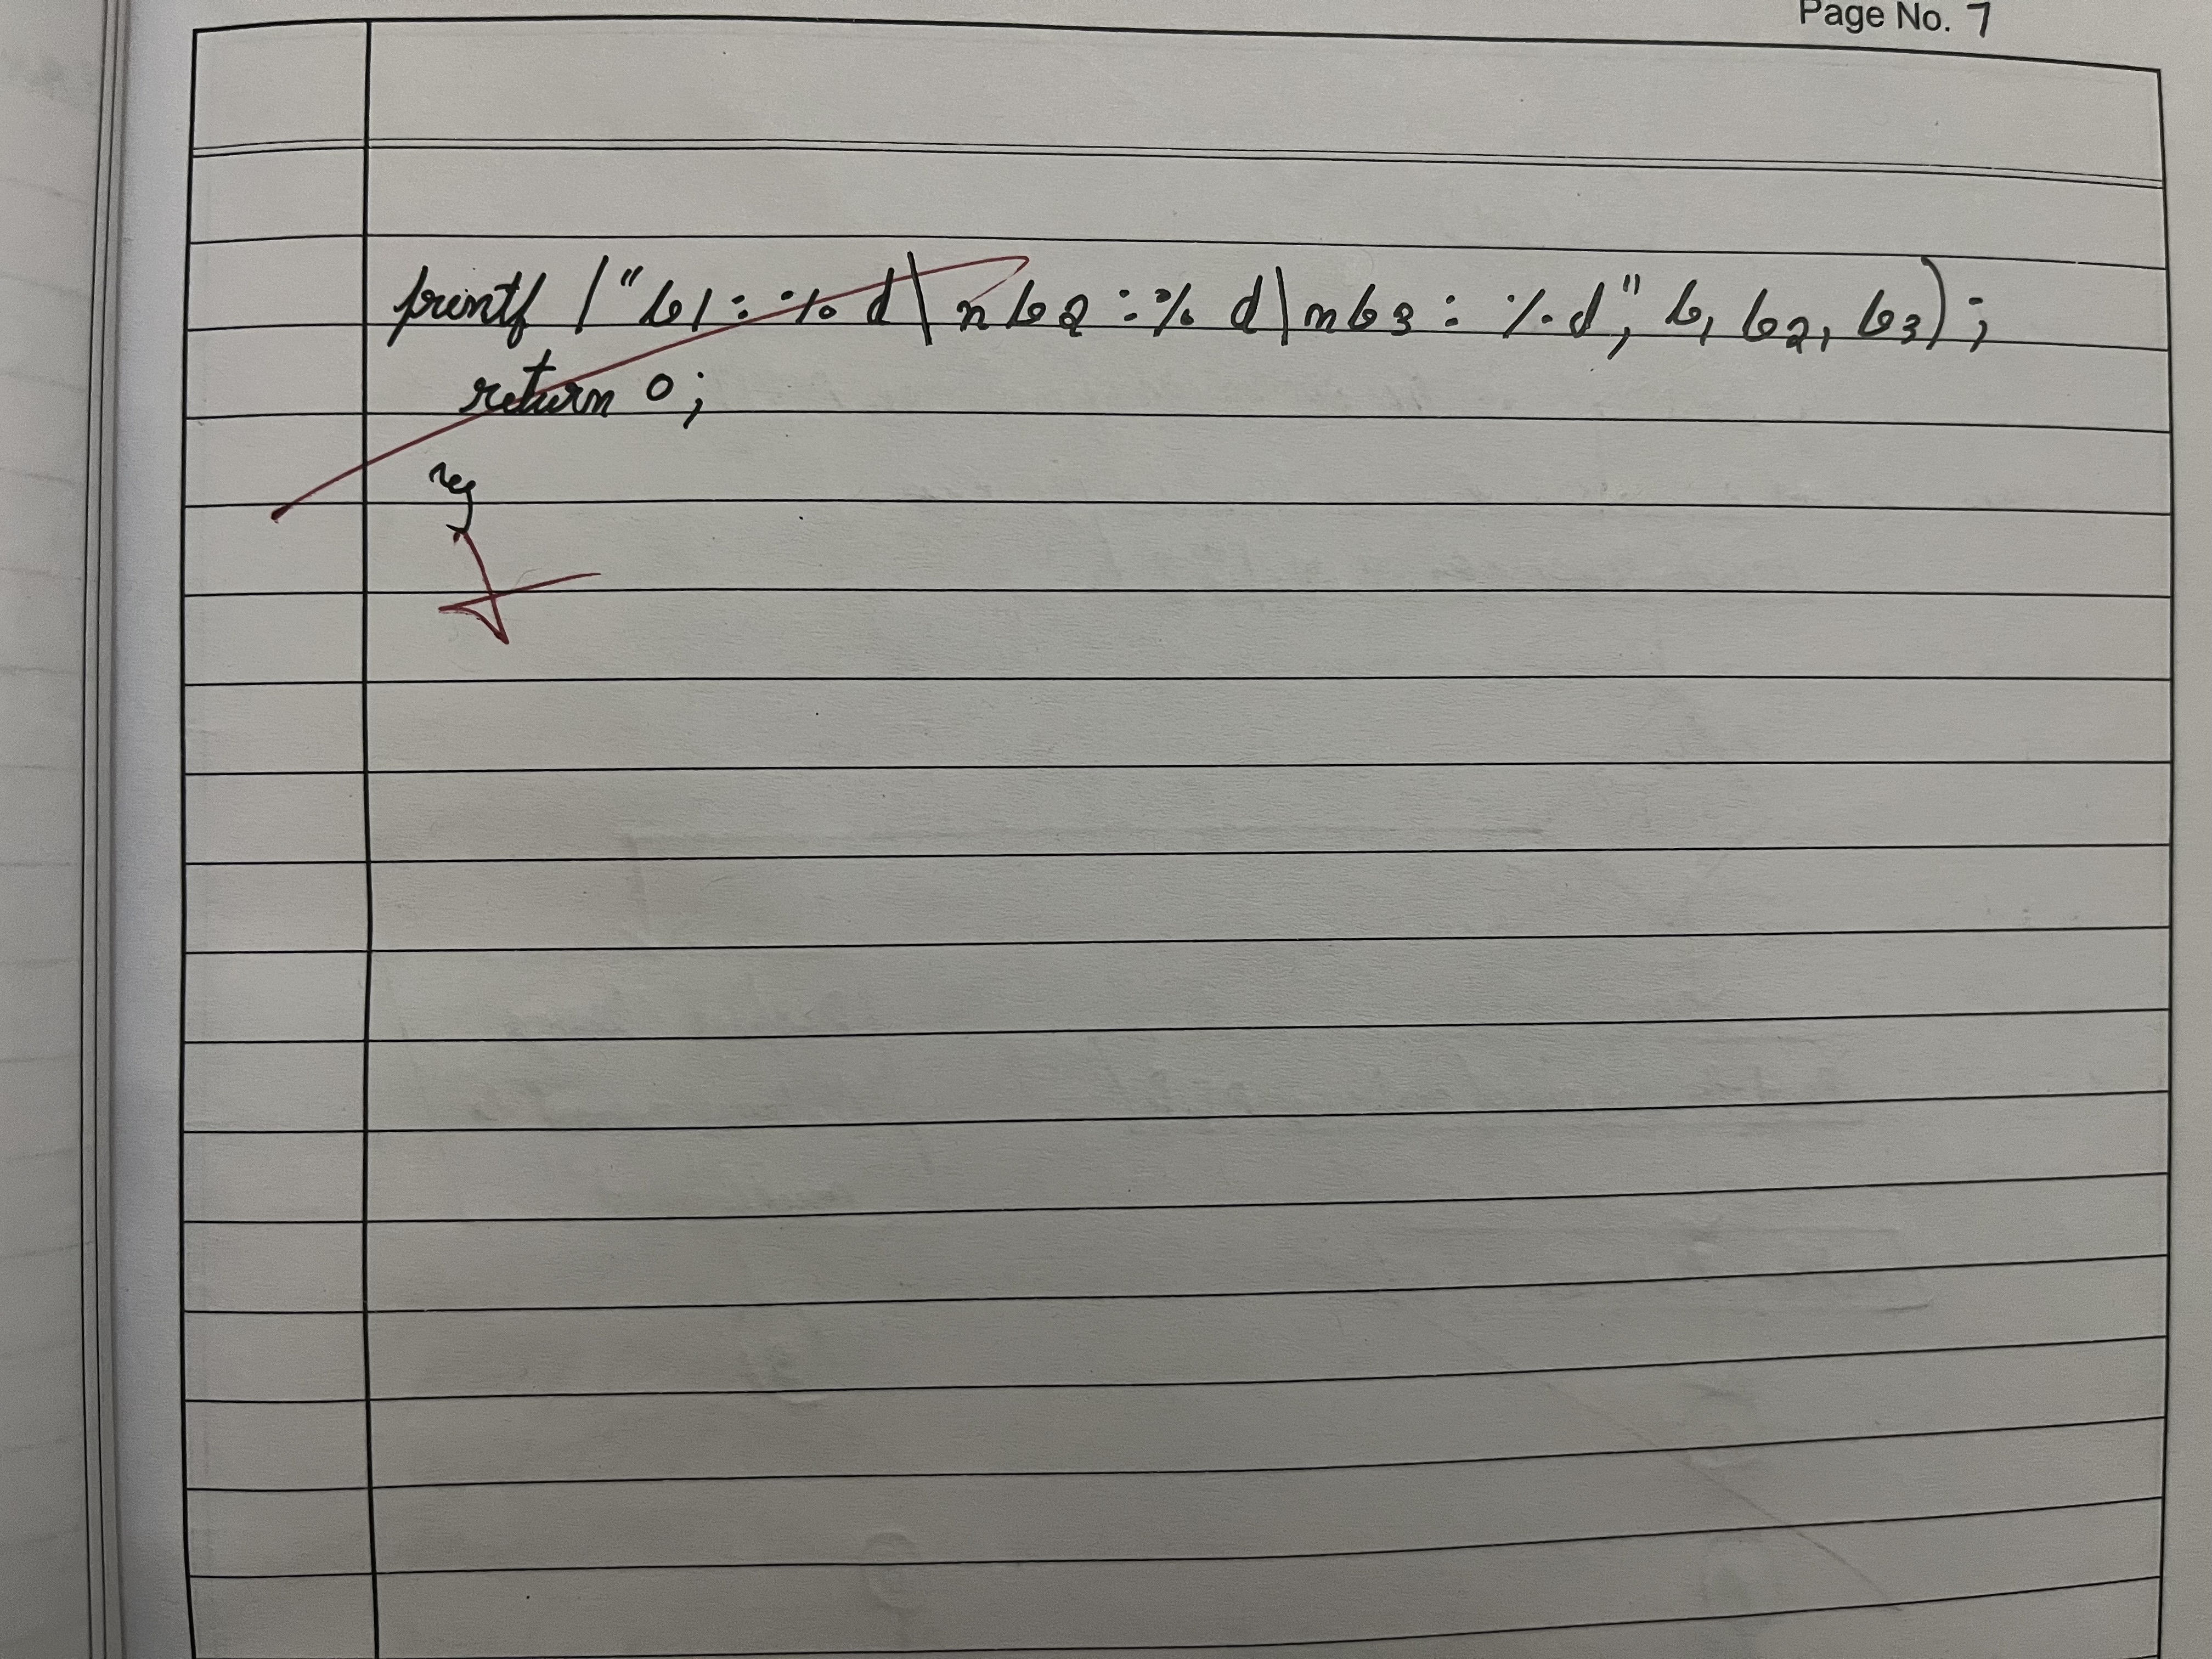 Page No. 7
printf ("b1 : %d\nb2 : %d\nb3 : %d," b1, b2, b3);
return 0;
}